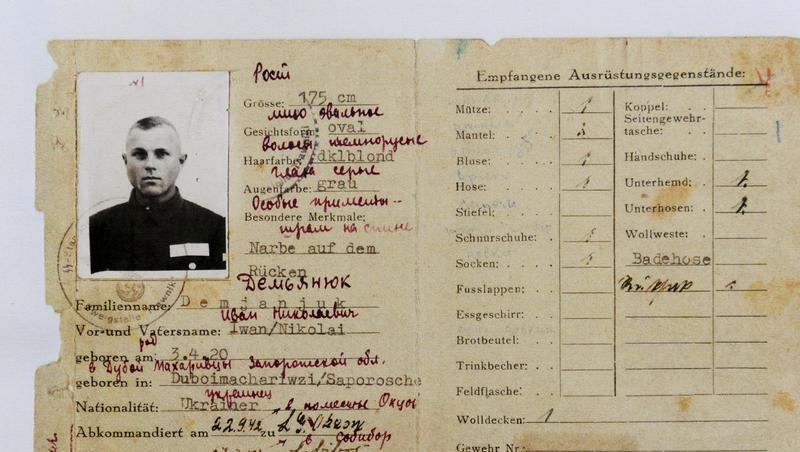 Рост
Grösse: 175 cm
лицо овальное
Gesichtsform: oval
волосы темнорусые
Haarfarbe: dklblond
глаза серые
Augenfarbe: grau
Особые приметы --
Besondere Merkmale:
шрам на спине
Narbe auf dem
Rücken
ДЕМЬЯНЮК
Familienname: Demjanjuk
Иван Николаевич
Vor- und Vatersname: Iwan/Nikolai
род
geboren am: 3.4.20
в Дубой Махаривцы Запорожской обл.
geboren in: Duboimachariwzi/Saporosche
украинец
Nationalität: Ukrainer
в поместье Окцов
Abkommandiert am 22.9.42 zu L.G. Okzow
в Собибор
Empfangene Ausrüstungsgegenstände:
Mütze: 1
Mantel: 1
Bluse: 1
Hose: 1
Stiefel:
Schnürschuhe: 1
Socken: 1
Fusslappen:
Essgeschirr:
Brotbeutel:
Trinkbecher:
Feldflasche:
Wolldecken: 1
Gewehr Nr.:
Koppel:
Seitengewehr-
tasche:
Handschuhe:
Unterhemd: 1.
Unterhosen: 1.
Wollweste:
Badehose